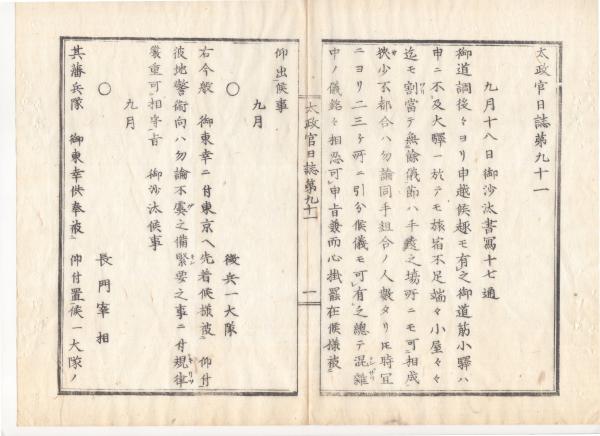 太政官日誌第九十一
九月十八日御沙汰書寫十七通
御道調役々ヨリ申越候趣モ有之御道筋小驛ハ
申ニ不及大驛一放テモ旅宿不足端々小屋々々
迄モ割當テ無餘儀節ハ手遠之場所ニモ可相成
狹少不都合ハ勿論同手組合ノ人數タリ圧時宜
ニヨリ二三ヶ所ニ引分候儀モ可有之總テ混雜
中ノ儀銘々相忍可申旨兼而心掛罷在候樣被
太政官日誌第九十一
一
仰出候事
九月
○
徴兵一大隊
右今般 御東幸ニ付東京ヘ先着候樣被 仰付
彼地警衛向ハ勿論不虞之備緊要之事ニ付規律
嚴重可相守旨 御沙汰候事
九月
○
長門宰相
其藩兵隊 御東幸供奉被 仰付置候一大隊ノ